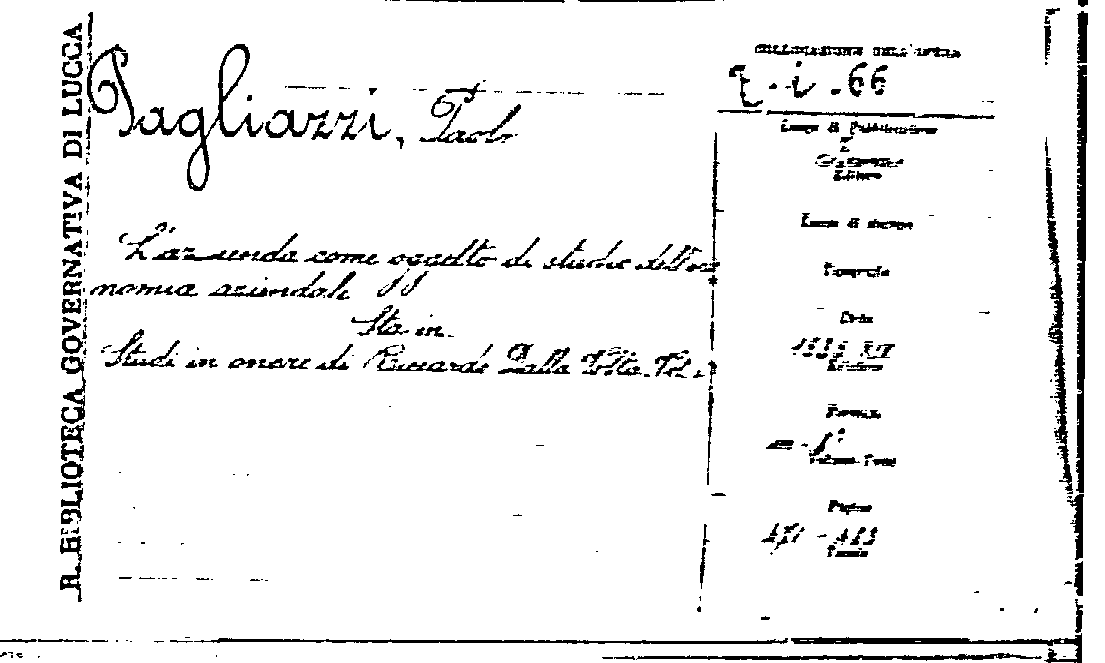 R. BIBLIOTECA GOVERNATIVA DI LUCCA
Pagliazzi, Paolo
L'azienda come oggetto di studio dell'eco
nomia aziendale
Sta in
Studi in onore di Riccardo Dalla Volta. Vol.
COLLOCAZIONE DELL'OPERA
i. 66
Luogo di Pubblicazione
Editore
Luogo di stampa
Tipografia
Data
Edizione
Formato
Volumi-Tomi
Pagine
Tavole